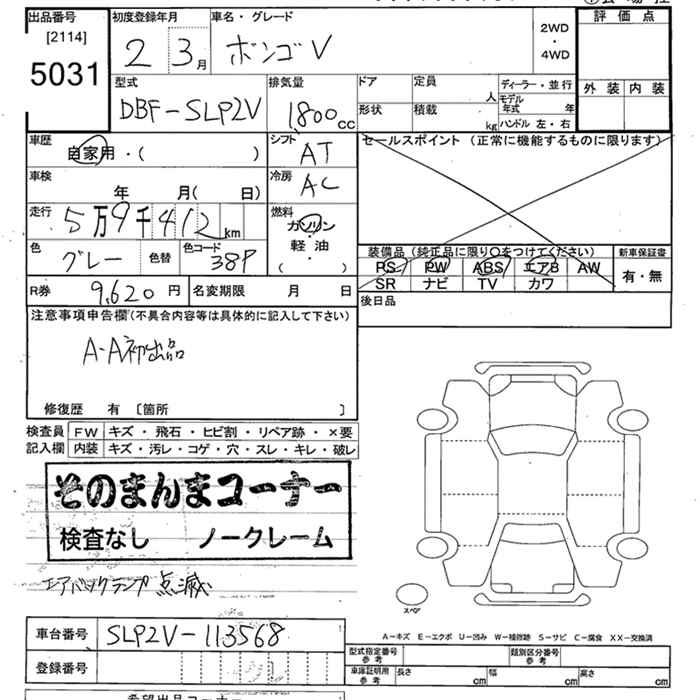 出品番号 初度登録年月 車名・グレード 評価点
[2114] 2 3月 ボンゴV 2WD・4WD
5031
型式 排気量 ドア 定員 人 ディーラー・並行 外装 内装
DBF-SLP2V 1800cc 形状 積載 kg モデル年式 年
ハンドル 左・右
車歴 シフト セールスポイント (正常に機能するものに限ります)
自家用・( ) AT
車検 冷房
年 月( 日) AC
走行 燃料
5万9千412km ガソリン
色 グレー 色替 色コード 38P 軽油 ( ・ )
装備品 (純正品に限り○をつけてください) 新車保証書
PS PW ABS エアB AW 有・無
SR ナビ TV カワ
R券 9,620円 名変期限 月 日 後日品
注意事項申告欄(不具合内容等は具体的に記入して下さい)
A-A初出品
修復歴 有 〔箇所 〕
検査員 FW キズ・飛石・ヒビ割・リペア跡・×要
記入欄 内装 キズ・汚レ・コゲ・穴・スレ・キレ・破レ
そのまんまコーナー
検査なし ノークレーム
エアバックランプ点滅
スペア
A-キズ E-エクボ U-凹み W-補修跡 S-サビ C-腐食 XX-交換済
車台番号 SLP2V-113568
型式指定番号 参考 類別区分番号 参考
登録番号
車庫証明用 参考 長さ cm 幅 cm 高さ cm
希望出品コーナー